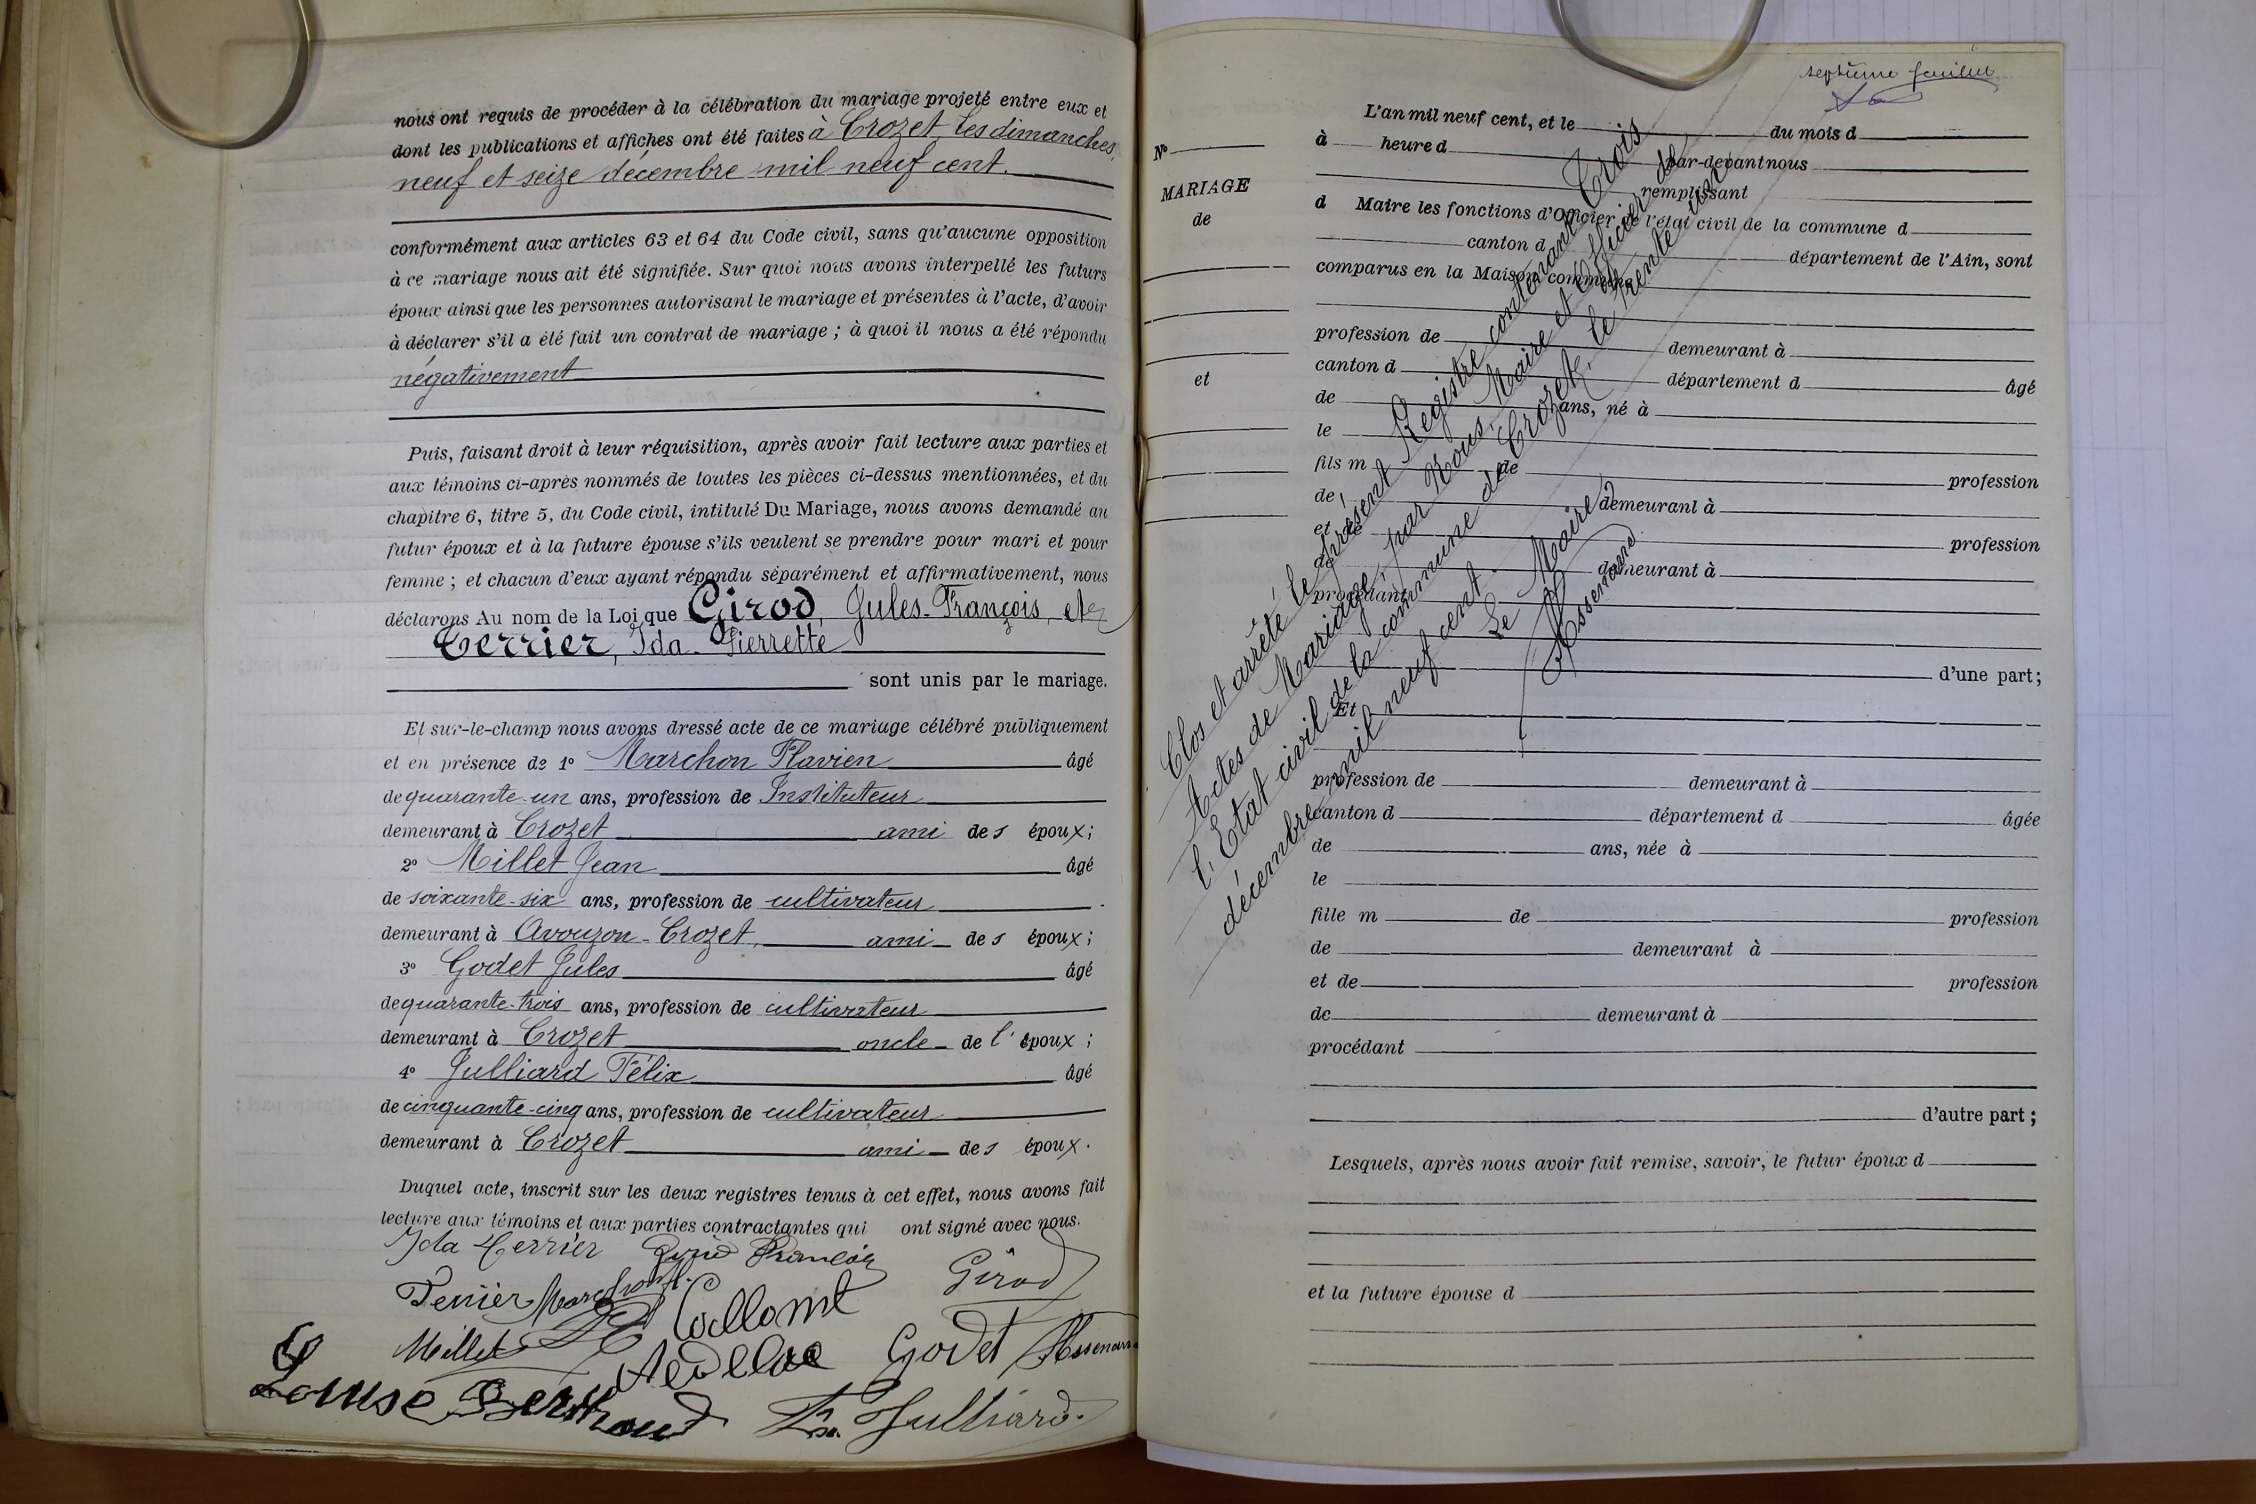 nous ont requis de procéder à la célébration du mariage projeté entre eux et
dont les publications et affiches ont été faites à Crozet, les dimanches,
neuf et seize décembre mil neuf cent.
conformément aux articles 63 et 64 du Code civil, sans qu'aucune opposition
à ce mariage nous ait été signifiée. Sur quoi nous avons interpellé les futurs
époux ainsi que les personnes autorisant le mariage et présentes à l'acte, d'avoir
à déclarer s'il a été fait un contrat de mariage ; à quoi il nous a été répondu
négativement
Puis, faisant droit à leur réquisition, après avoir fait lecture aux parties et
aux témoins ci-après nommés de toutes les pièces ci-dessus mentionnées, et du
chapitre 6, titre 5, du Code civil, intitulé Du Mariage, nous avons demandé au
futur époux et à la future épouse s'ils veulent se prendre pour mari et pour
femme ; et chacun d'eux ayant répondu séparément et affirmativement, nous
déclarons Au nom de la Loi que Girod, Jules-François, et
Terrier, Ida-Pierrette
sont unis par le mariage.
Et sur-le-champ nous avons dressé acte de ce mariage célébré publiquement
et en présence de 1° Marchon Flavien âgé
de quarante-un ans, profession de Instituteur
demeurant à Crozet ami des époux ;
2° Millet Jean âgé
de soixante-six ans, profession de cultivateur
demeurant à Avouzon-Crozet, ami des époux ;
3° Godet Jules âgé
de quarante-trois ans, profession de cultivateur
demeurant à Crozet oncle de l'époux ;
4° Julliard Félix âgé
de cinquante-cinq ans, profession de cultivateur
demeurant à Crozet ami des époux.
Duquel acte, inscrit sur les deux registres tenus à cet effet, nous avons fait
lecture aux témoins et aux parties contractantes qui ont signé avec nous.
Ida Terrier Girod François
Terrier Marchon f. Collomb Girod
Millet Godet
Louise Berthoud F. Julliard.
septième feuillet
N°
MARIAGE
de
et
L'an mil neuf cent, et le du mois d
à heure d par-devant nous
remplissant
d Maire les fonctions d'Officier de l'état civil de la commune d
canton d département de l'Ain, sont
comparus en la Maison commune
profession de demeurant à
canton d département d âgé
de ans, né à
le
fils m de profession
de demeurant à
et de profession
de demeurant à
procédant
d'une part ;
Et
profession de demeurant à
canton d département d âgée
de ans, née à
le
fille m de profession
de demeurant à
et de profession
de demeurant à
procédant
d'autre part ;
Lesquels, après nous avoir fait remise, savoir, le futur époux d
et la future épouse d
Clos et arrêté le présent Registre contenant Trois
Actes de Mariage, par Nous, Maire et Officier de
l'Etat civil de la commune de Crozet, le trente un
décembre mil neuf cent.
Le Maire